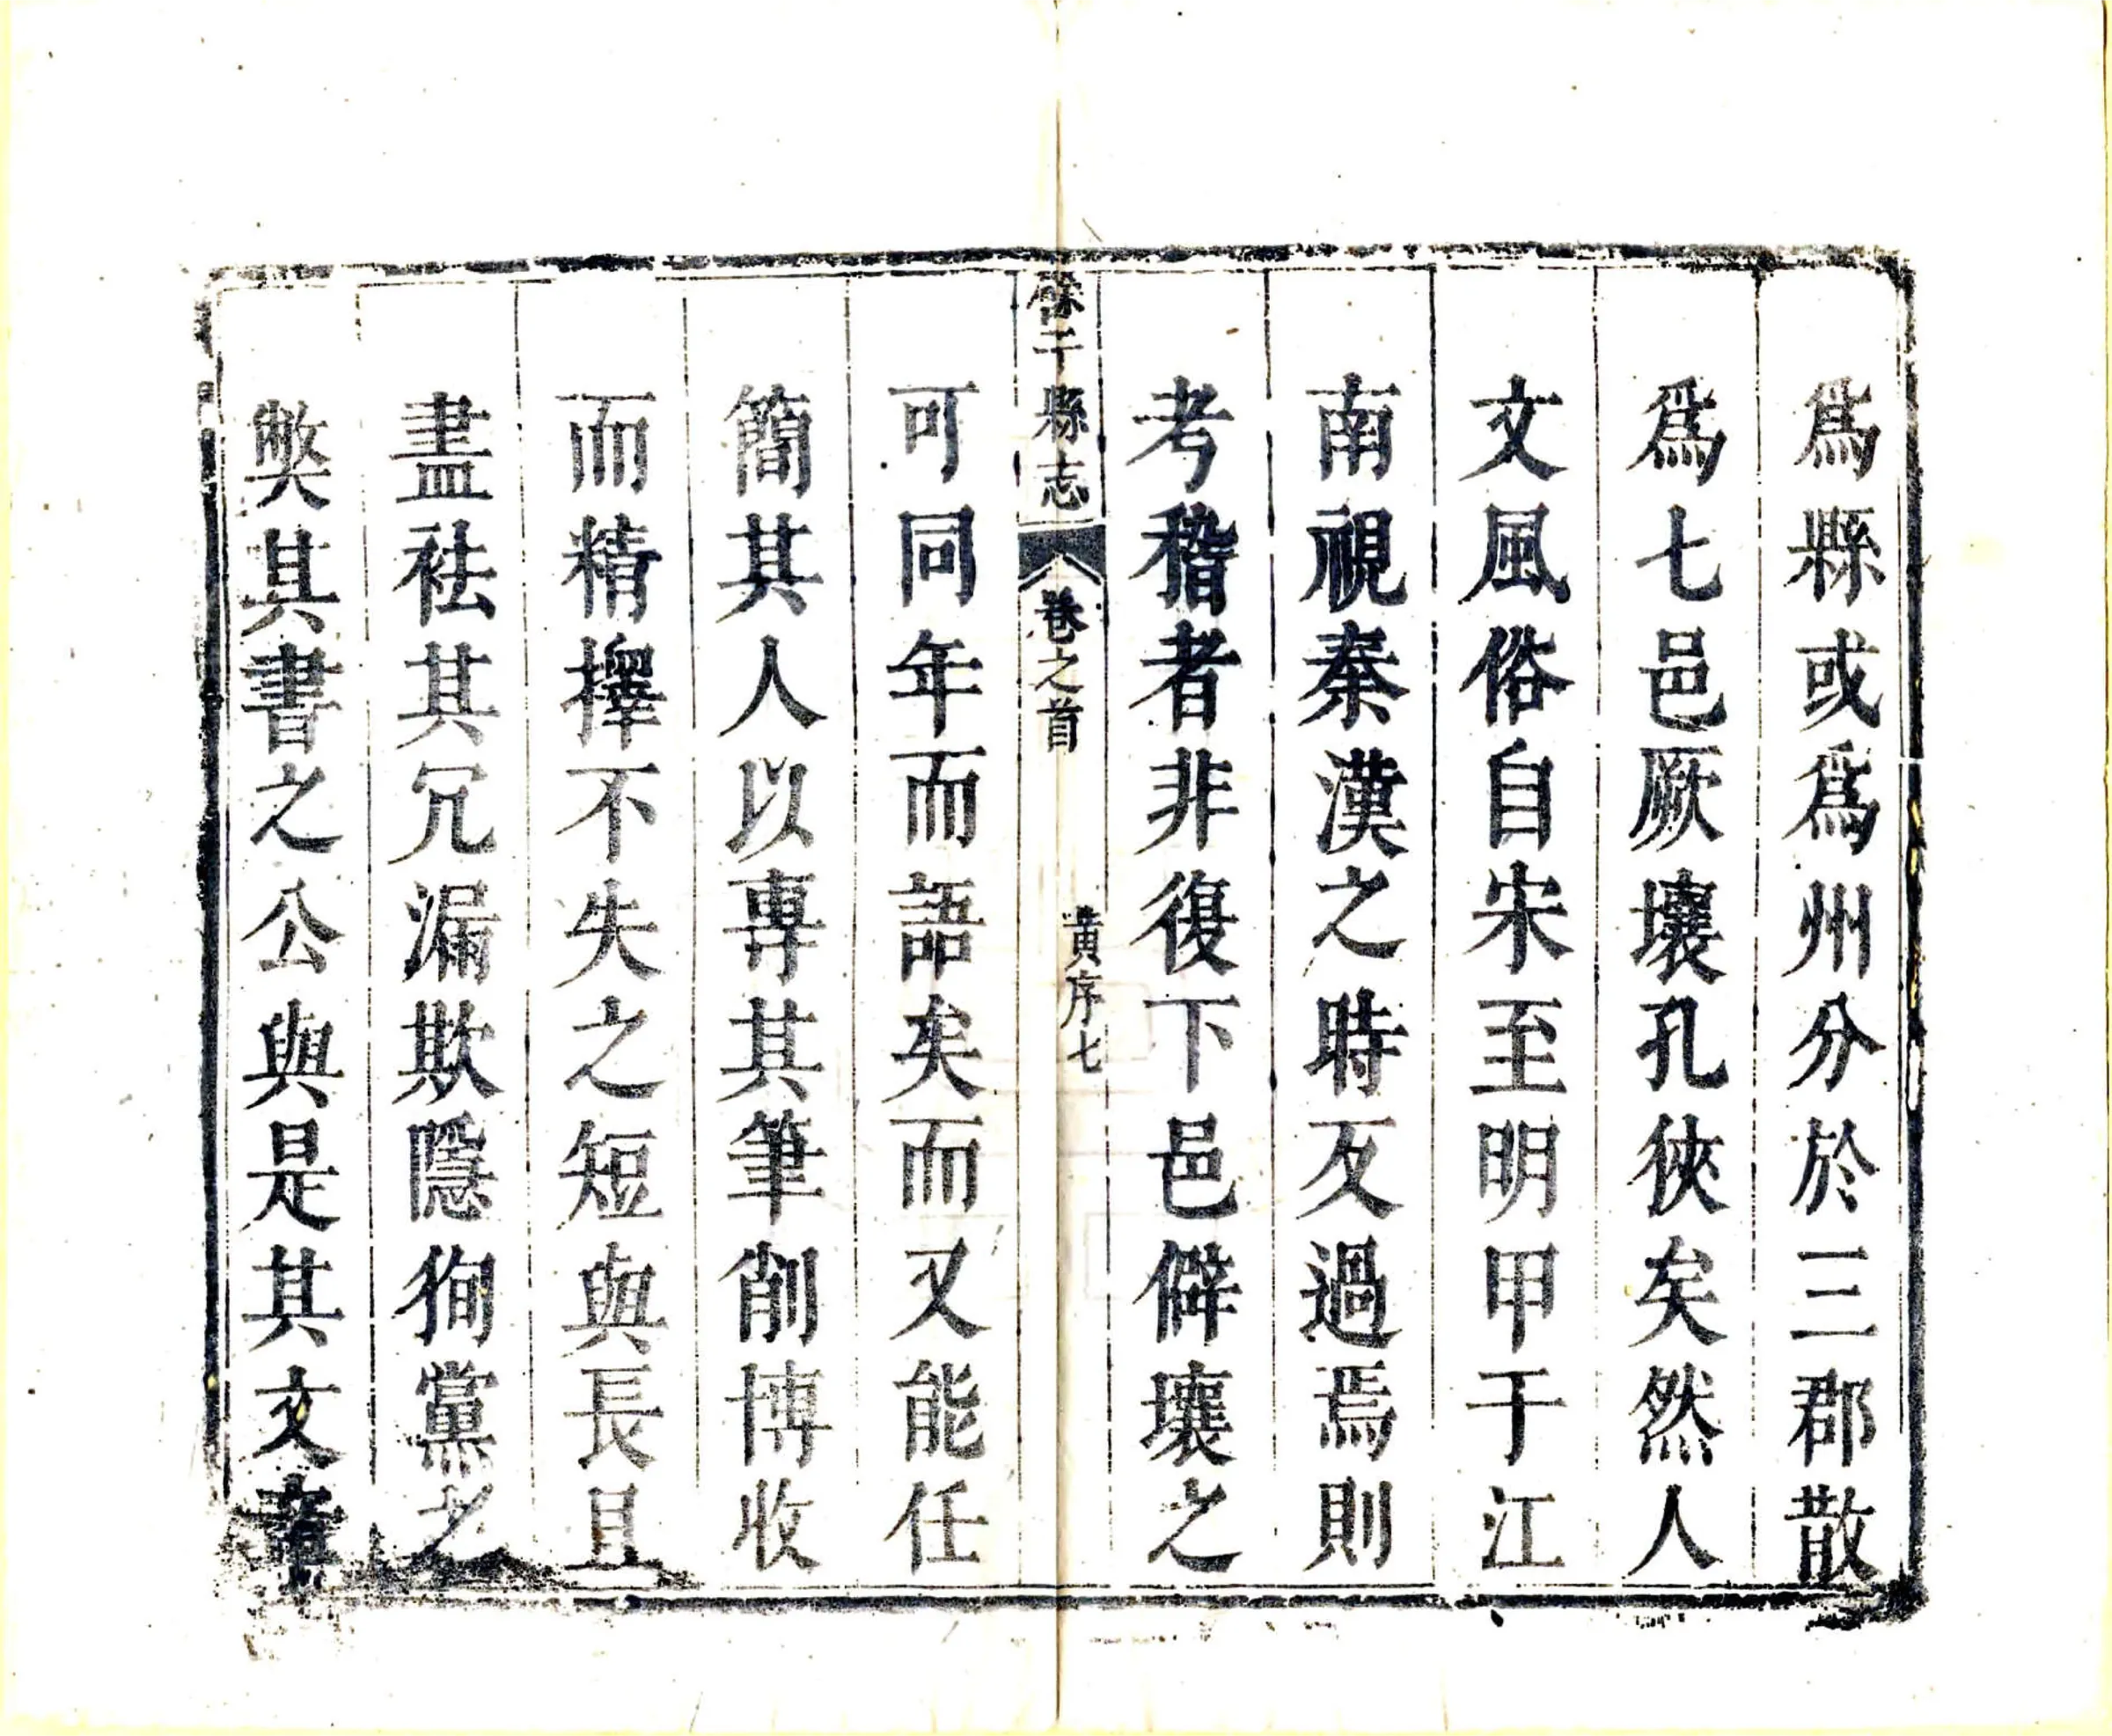 爲縣或爲州分於三郡散
爲七邑厥壤孔狹矣然人
文風俗自宋至明甲于江
南視秦漢之時反過焉則
考稽者非復下邑僻壤之
餘干縣志
卷之首
黄序七
可同年而語矣而又能任
簡其人以專其筆削博收
而精擇不失之短與長且
盡祛其冗漏欺隱狥黨之
獘其書之公與是其文章